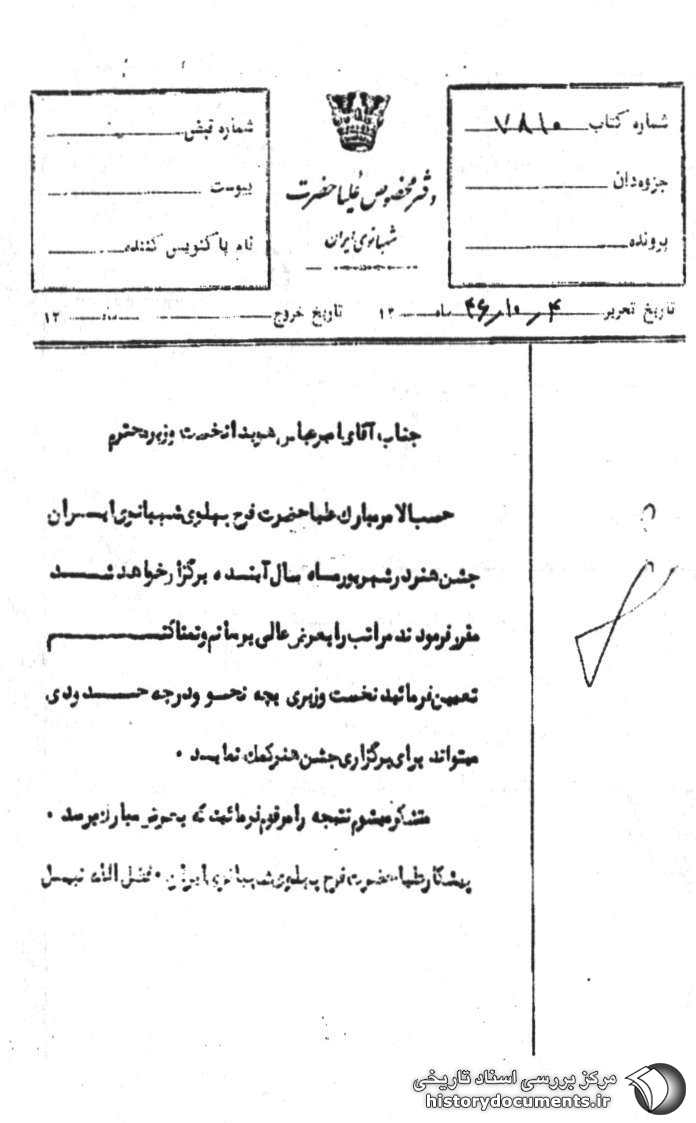 شماره کتاب ۷۸۱۰
جزوه‌دان
پرونده
دفتر مخصوص علیاحضرت
شهبانوی ایران
شماره قبض
پیوست
نام پاکنویس کننده
تاریخ تحریر ۴ر۱۰ر۴۶ ماه ۱۳
تاریخ خروج ماه ۱۳
جناب آقای امیرعباس هویدا نخست وزیر محترم
حسب الامر مبارک علیاحضرت فرح پهلوی شهبانوی ایران
جشن هنر در شهریورماه سال آینده برگزار خواهد شد
مقرر فرمودند مراتب را بعرض عالی برسانم و تمنا کنم
تعیین فرمائید نخست وزیری بچه نحو و درجه حدودی
میتواند برای برگزاری جشن هنر کمک نماید .
متشکر میشوم نتیجه را مرقوم فرمائید که بعرض مبارک برسد .
پیشکار علیاحضرت فرح پهلوی شهبانوی ایران . فضل الله نبیل
مرکز بررسی اسناد تاریخی
historydocuments.ir